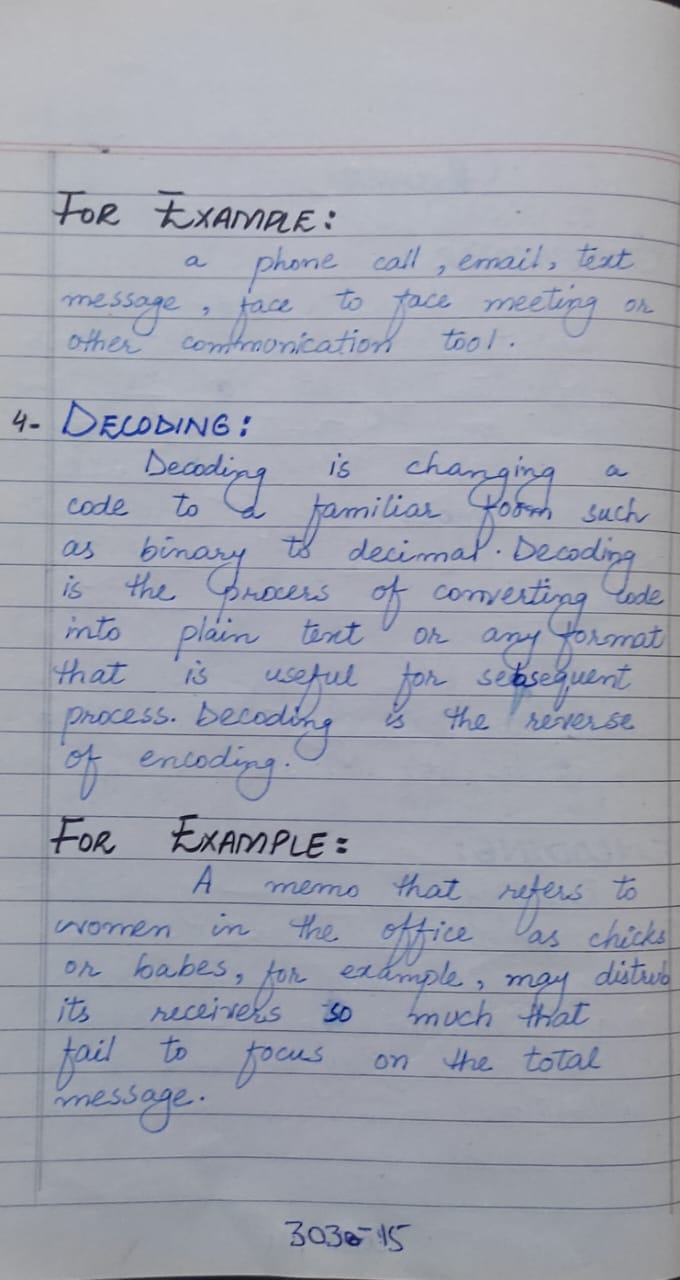 FOR EXAMPLE:
a phone call, email, text
message, face to face meeting or
other commonication tool.
4- DECODING:
Decoding is changing a
code to a familiar form such
as binary to decimal. Decoding
is the process of converting code
into plain text or any format
that is useful for sebsequent
process. Decoding is the reverse
of encoding.
FOR EXAMPLE:
A memo that refers to
women in the office as chicks
or babes, for example, may distrub
its receivers so much that
fail to focus on the total
message.